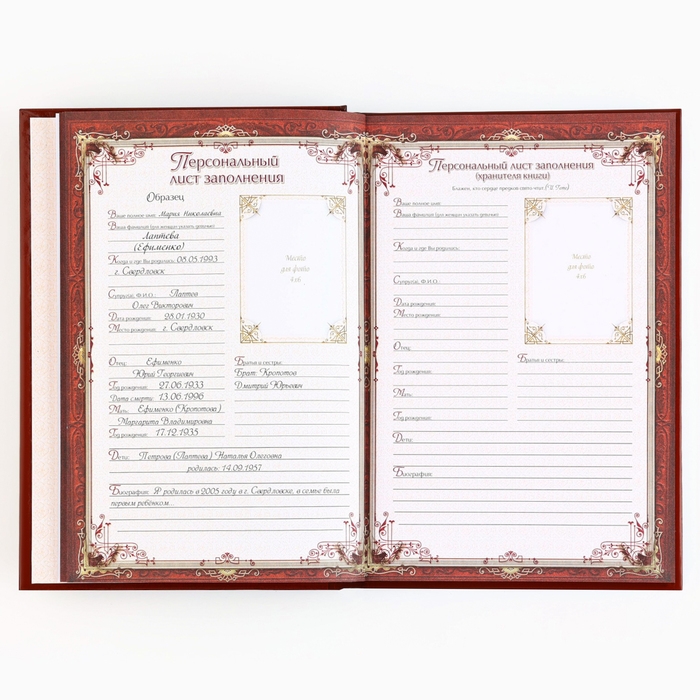 Персональный
лист заполнения
Образец
Ваше полное имя: Мария Николаевна
Ваша фамилия (для женщин указать девичью)
Лаптева
(Ефименко)
Когда и где Вы родились: 08.05.1993
г. Свердловск
Супруг(а), Ф.И.О.: Лаптев
Олег Викторович
Дата рождения: 28.01.1930
Место рождения: г. Свердловск
Место
для фото
4х6
Отец: Ефименко
Юрий Георгиевич
Год рождения: 27.06.1933
Дата смерти: 13.06.1996
Мать: Ефименко (Кропотова)
Маргарита Владимировна
Год рождения: 17.12.1935
Братья и сестры:
Брат: Кропотов
Дмитрий Юрьевич
Дети: Петрова (Лаптева) Наталья Олеговна
родилась: 14.09.1957
Биография: Я родилась в 2005 году в г. Свердловске, в семье была
первым ребёнком...
Персональный лист заполнения
(хранителя книги)
Блажен, кто сердце предков свято чтит. (И. Гете)
Ваше полное имя:
Ваша фамилия (для женщин указать девичью)
Когда и где Вы родились:
Супруг(а), Ф.И.О.:
Дата рождения:
Место рождения:
Место
для фото
4х6
Отец:
Год рождения:
Мать:
Год рождения:
Братья и сестры:
Дети:
Биография: